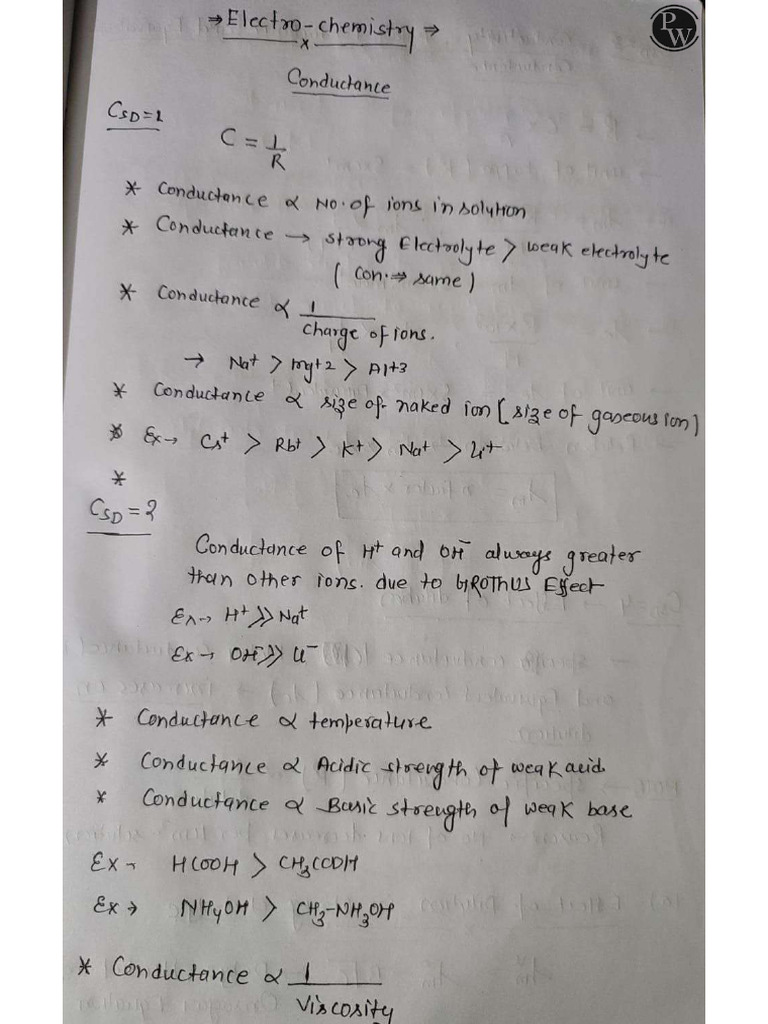 ⇒ Electro-chemistry ⇒
x
PW
Conductance
CSD=1
C = 1/R
* Conductance ∝ No. of ions in solution
* Conductance → strong Electrolyte > weak electrolyte
( Con. ⇒ same )
* Conductance ∝ 1/charge of ions.
→ Na+ > mg+2 > Al+3
* Conductance ∝ size of naked ion [size of gaseous ion]
* Ex → Cs+ > Rb+ > K+ > Na+ > Li+
*
CSD = 2
Conductance of H+ and OH- always greater
than other ions. due to GROTHUS Effect
Ex → H+ >> Na+
Ex → OH- >> Cl-
* Conductance ∝ temperature
* Conductance ∝ Acidic strength of weak acid
* Conductance ∝ Basic strength of weak base
Ex → HCOOH > CH3COOH
Ex → NH4OH > CH3-NH3OH
* Conductance ∝ 1/Viscosity